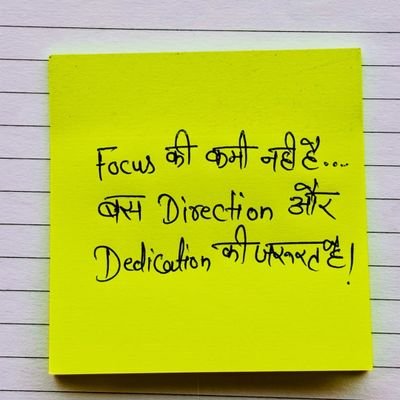 Focus की कमी नही है....
बस Direction और
Dedication की जरूरत है!